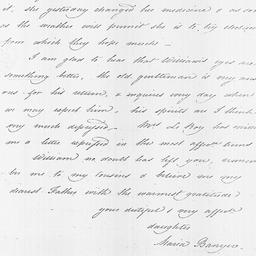 it. she yesterday changed her medicine & as soon
as the weather will permit she is to try
from which they hope much —
I am glad to hear that William's eyes are
something better, the old gentleman is very anx
ious for his return, & inquires every day when
we may expect him, his spirits are I think
very much depressed. Mrs Le Roy has
me a letter in the most affect terms
William no doubt has left you,
ber me to my cousins & believe me my
dearest Father with the warmest gratitude
your dutiful & very affect
daughter
Maria Banyer.